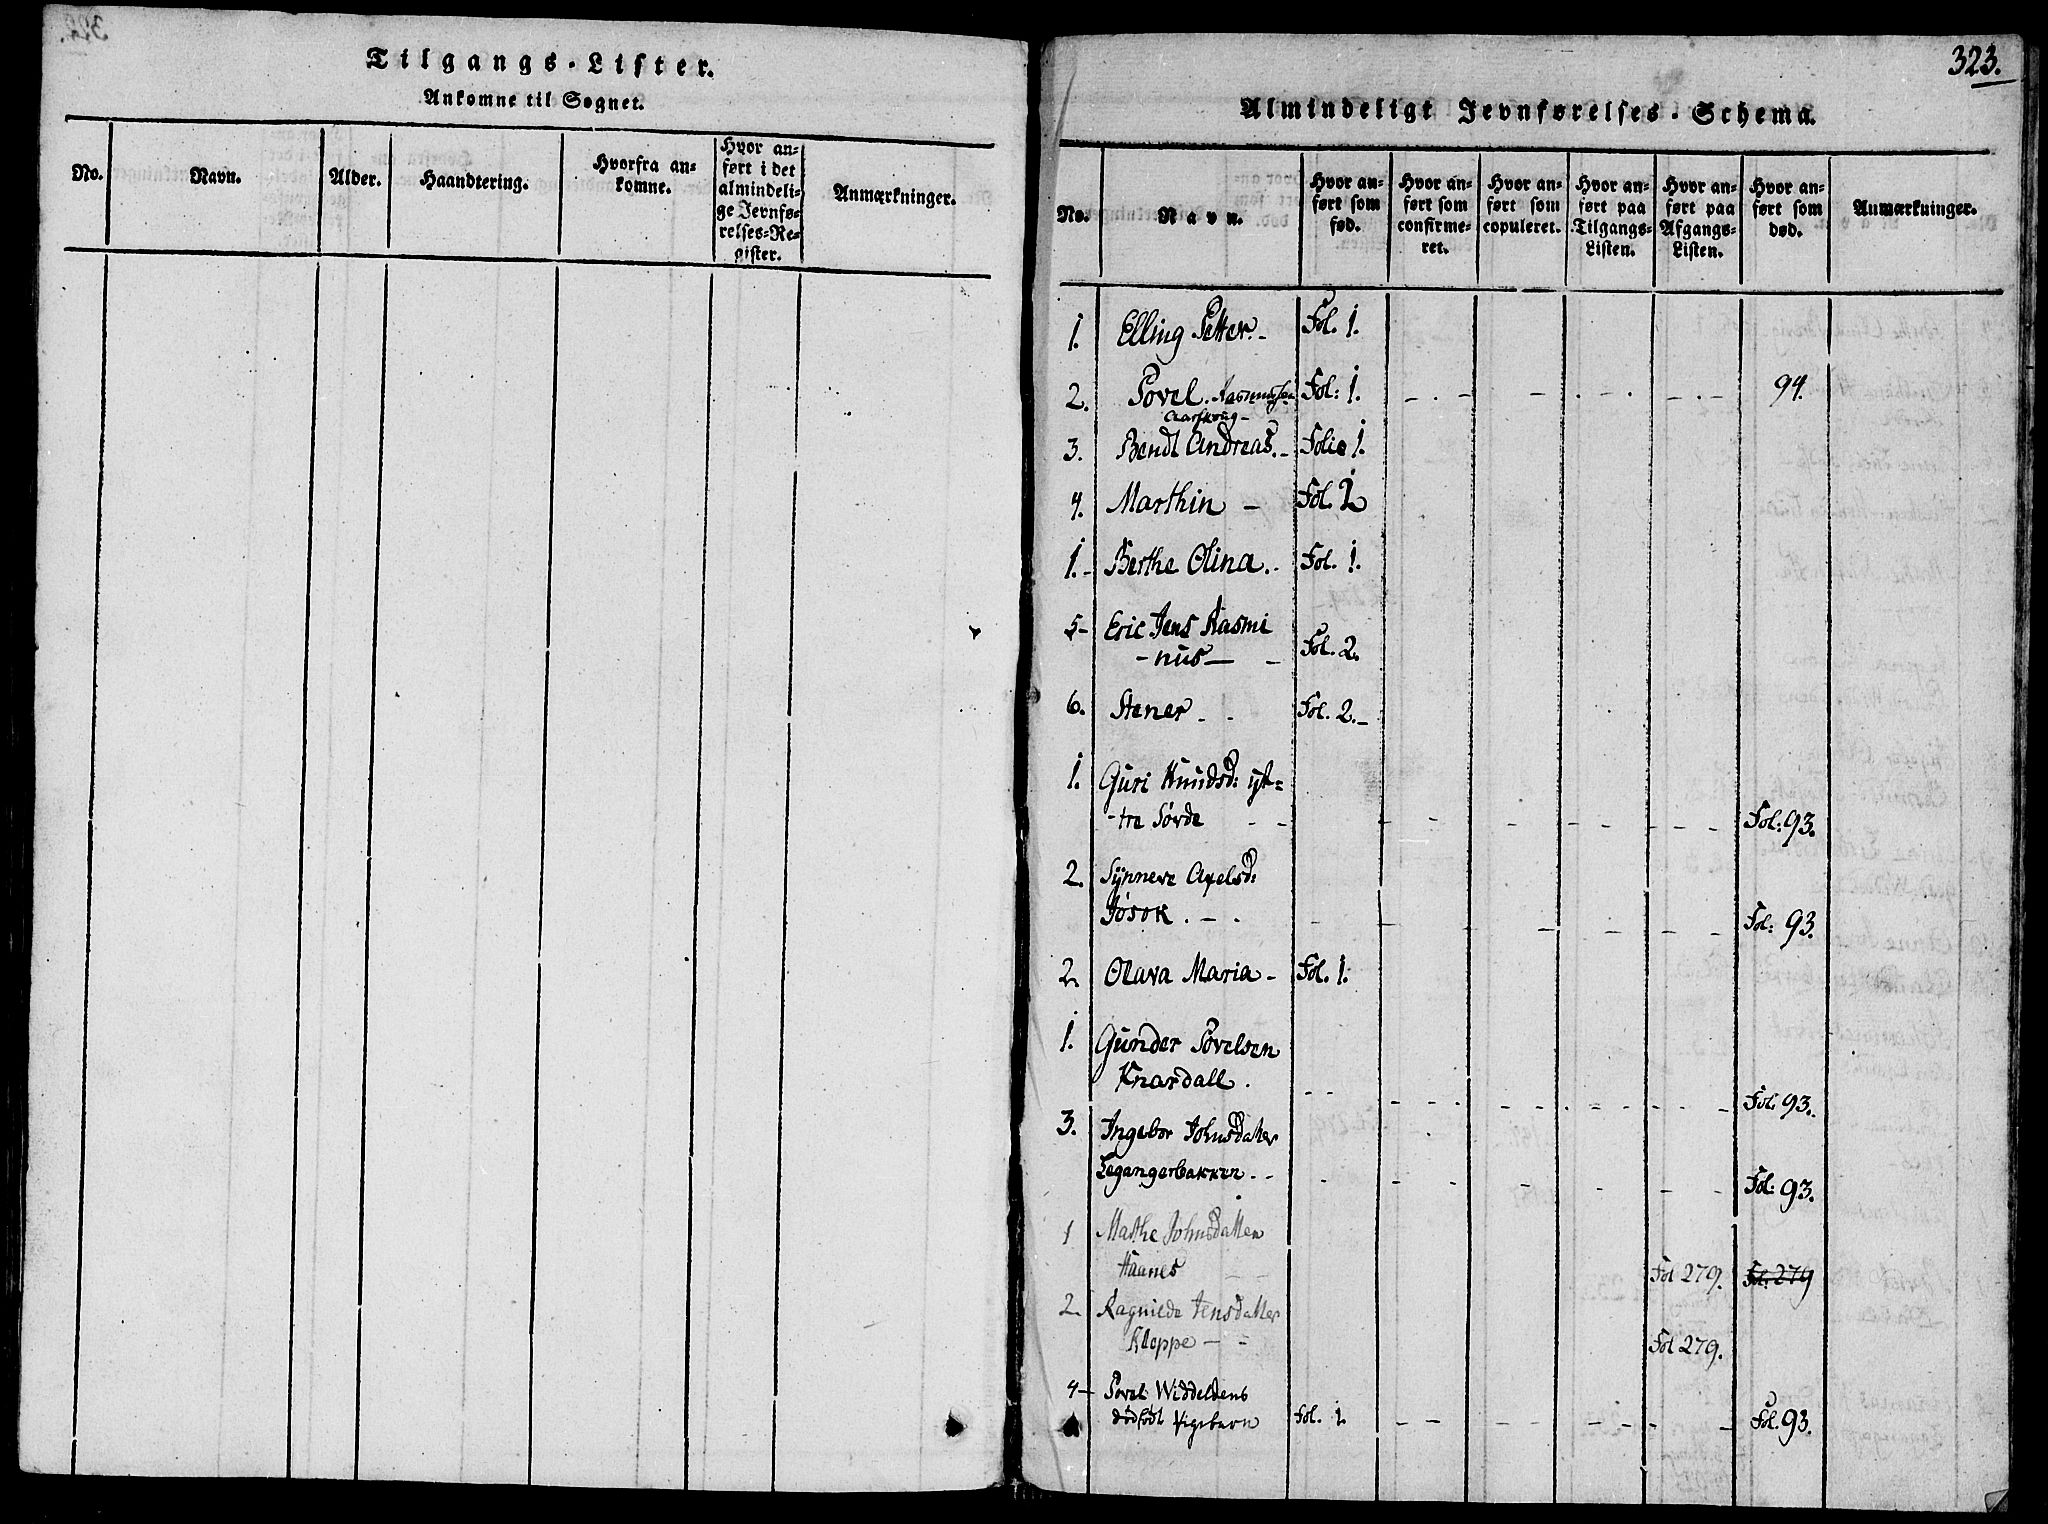 Tilgangs-Lister.
Ankomne til Sognet.
No.
Navn.
Alder.
Haandtering.
Hvorfra an-
komne.
Hvor an-
ført i det
almindeli-
ge Jevnfø-
relses-Re-
gister.
Anmærkninger.
323.
Almindeligt Jevnførelses-Schema.
No.
Navn.
Hvor an-
ført som
fød.
Hvor an-
ført som
confirme-
ret.
Hvor an-
ført som
copuleret.
Hvor an-
ført paa
Tilgangs-
Listen.
Hvor an-
ført paa
Afgangs-
Listen.
Hvor an-
ført som
død.
Anmærkninger.
1. Elling Petter. - Fol. 1.
2. Povel. Rasmussen Fol: 1. 94.
3. Bendt Andreas. - Folio 1.
4. Marthin - Fol. 1
1. - Berthe Olina. - Fol. 1.
5 - Eric Jens Rasmi
- nus - - Fol. 2.
6. Stener - - Fol. 2. -
1. Guri Knudsd: yt=
- tre Sørde - - Fol: 93.
2. Synneve Axelsd:
Jøsok. - - Fol: 93.
2. Olava Maria - Fol. 1.
1. Gunder Povelsen
Knardall. Fol. 93.
3. Ingebor Johnsdatter
Legangerbakken. - Fol: 93.
1 Mathe Johnsdatter
Haanes Fol 279. Fol: 279
2. Ragnilde Jensdatter
Kloppe - - Fol 279.
4 - Povel Widdeldens
dødfødt Pigebarn Fol. 1. Fol. 93.